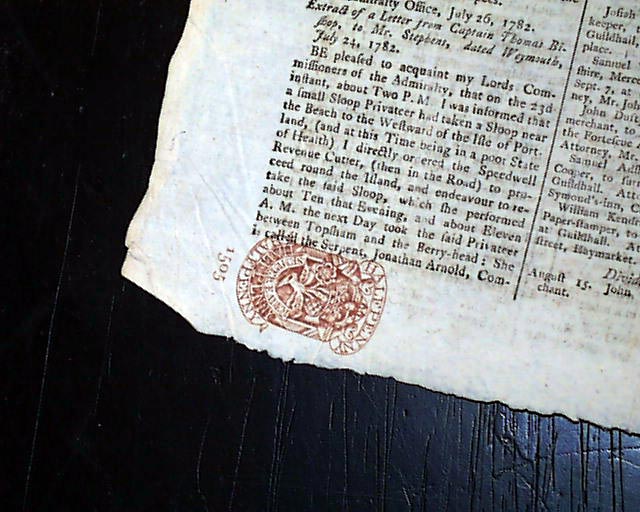 miralty Office, July 26, 1782.
Extract of a Letter from Captain Thomas Bi-
shop, to Mr. Stephens, dated Weymouth,
July 24, 1782.
BE pleaſed to acquaint my Lords Com-
miſſioners of the Admiralty, that on the 23d
inſtant, about Two P. M. I was informed that
a ſmall Sloop Privateer had taken a Sloop near
the Beach to the Weſtward of the Iſle of Port-
land, (and at this Time being in a poor State
of Health) I directly ordered the Speedwell
Revenue Cutter, (then in the Road) to pro-
ceed round the Iſland, and endeavour to re-
take the ſaid Sloop, which ſhe performed
about Ten that Evening, and about Eleven
A. M. the next Day took the ſaid Privateer
between Topſham and the Berry-head: She
is call'd the Serpent, Jonathan Arnold, Com-
1505
HALFPENNY
Joſiah
keeper, t
Guildhall
place.
Samuel
ſhire, Merc
Sept. 7, at
ney, Mr. Jo
John Duf
merchant, to
the Forteſcue
Attorney, M
Samuel Ad
Cooper, to ſur
Guildhall. Att
Symond's-Inn,
William Kend
Paper-ſtamper, to
at Guildhall. A
ſtreet, Haymarket.
Divid
Auguſt 15. John
chant.